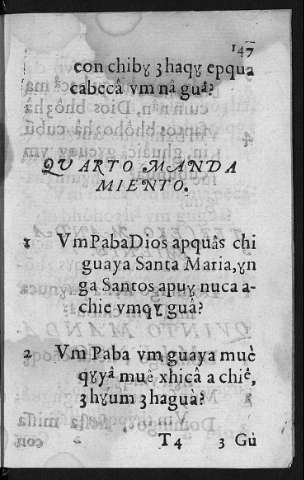 147
con chibɣ ʒhaqɣ epqua
cabecâ vm nâ guâ?
QVARTO MANDA
MIENTO.
1 Vm Paba Dios apquâs chi
guaya Santa Maria, ɣn
ga Santos apuɣ nuca a-
chie vmqɣ guâ?
2 Vm Paba vm guaya muè
qɣyâ muè xhicâ a chiê,
ʒhɣum ʒhaguà?
T4 3 Gù